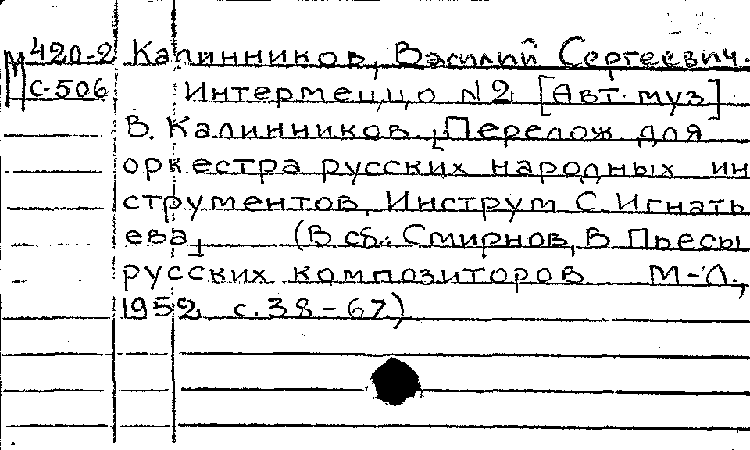 М 420-2 Калинников, Василий Сергеевич.
С-506 Интермеццо №2 [Авт. муз]
В. Калинников. [Перелож для
оркестра русских народных ин
струментов, Инструм С. Игнать
ева] (В сб.: Смирнов, В Пьесы
русских композиторов М-Л,
1952 с. 38-67)